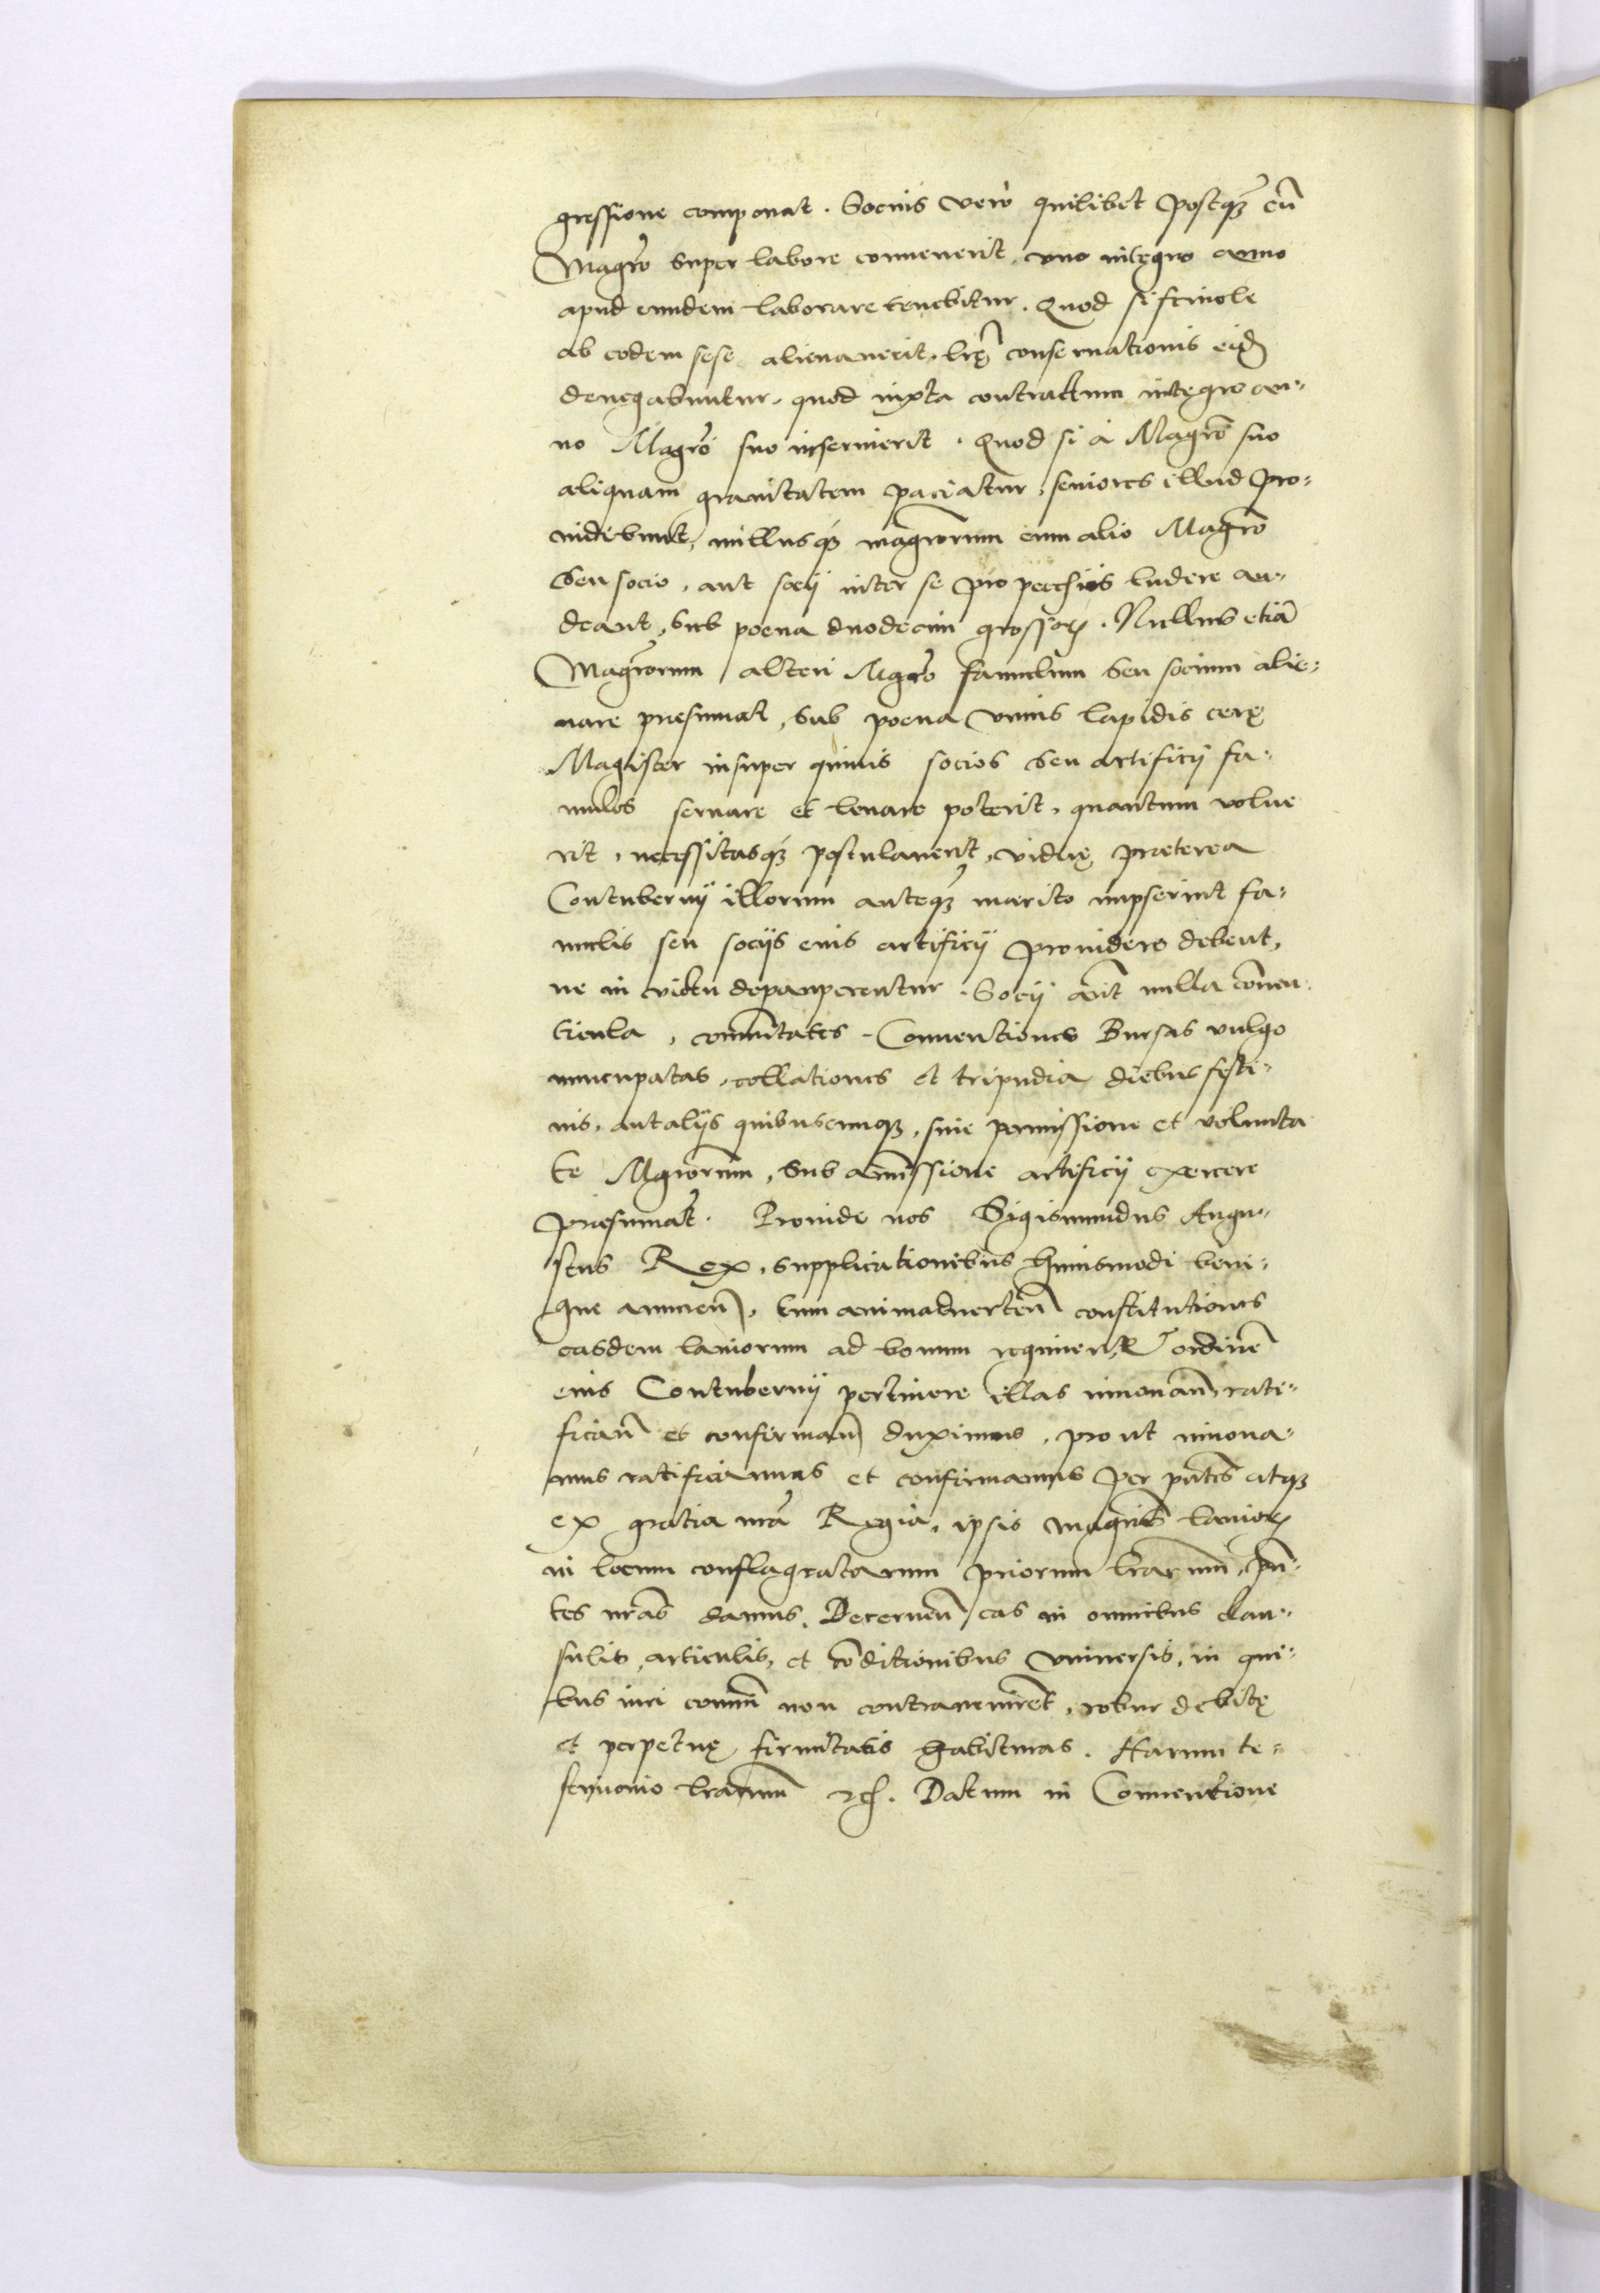 gressione componat. Socius verò quilibet postq̃ȝ cũ
Magr̃o super labore convenerit, vno integro anno
apud eundem laborare tenebitur. Quod si frivole
ab eodem sese alienaverit, lr̃ę conservationis eid̃
denegabuntur, quod iuxta contractum integro an-
no Magr̃o suo inservierit. Quod si à Magr̃o suo
aliquam gravitatem paciatur, seniores illud pro-
videbunt, nullusqȝ magr̃orum cum alio Magr̃o
seu socio, aut socij inter se pro pecchijs ludere au-
deant, sub poena duodecim grossoꝝ. Nullus etiã
Magr̃orum alteri Mgr̃o famulum seu socium alie-
nare presumat, sub poena vnius lapidis cerę
Magister insuper quivis socios seu artificij fa-
mulos servare et levare poterit, quantum volue
rit, necessitasqȝ postulaverit, viduę præterea
Contubernij illorum anteqȝ̃ marito nupserint fa-
mulis seu socijs eius artificij providere debent,
ne in victu depauperentur. Socij aũt nulla cõven
ticula, com̃itates, Conventiones Bursas vulgo
nuncupatas, collationes et tripudia, diebus festi-
vis, aut alijs quibuscunqȝ, sine permissione et volunta
te Mgr̃orum, sub amissione artificij exercere
præsumãt. Proinde nos Sigismundus Augu-
stus Rex, supplicationibus huiusmodi beni-
gne annueñ, tum animadverteñ constitutiones
easdem laniorum ad bonum regimen et ordinẽ
eius Contubernij pertinere illas innovañ, rati-
ficañ et confirmañ duximus, prout innova-
mus ratificamus et confirmamus per pñtes atqȝ
ex gratia nr̃a Regia, ipsis magr̃is lanioꝝ
in locum conflagratarum priorum lr̃arum, pñ-
tes nr̃as damus. Decerneñ eas in omnibus clau-
sulis, articulis, et cõditionibus vniversis, in qui-
bus iuri com̃i non contravenirẽt, robur debitę
et perpetuę firmitatis habituras. Harum te-
stimonio lr̃arum ꝛc̃. Datum in Conventione